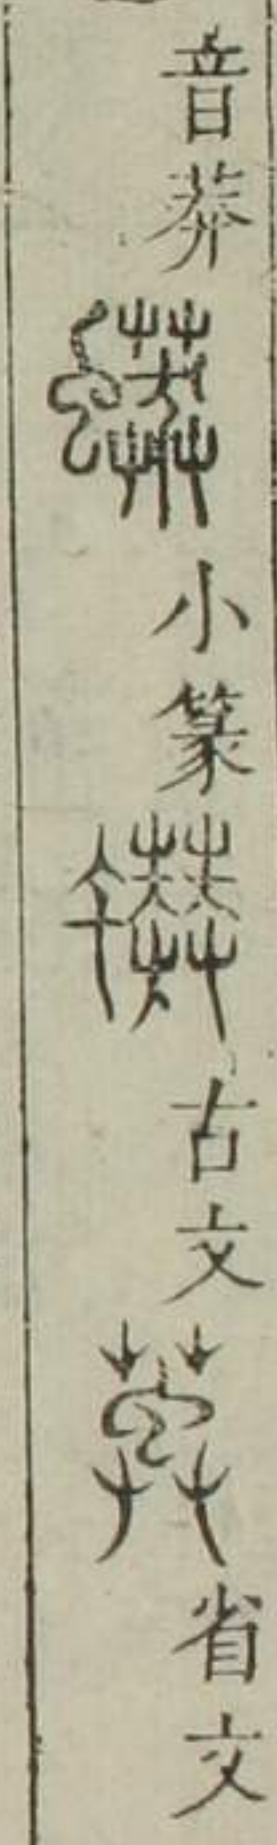 音莽小篆古文省文